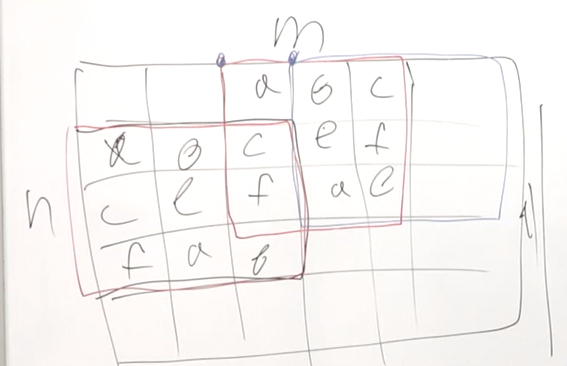 m
a b c
a b c e f
n c e f a e
f a b